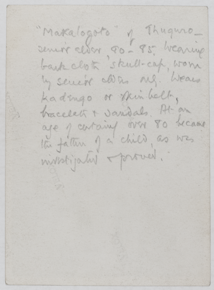 "Makalogoto" of Thuguro -
senior elder 80 - 85, wearing
bark cloth 'skull-cap, worn
by senior elders only. Wears
or skin belt,
bracelets & sandals. At an
age of certainly over 80 became
the father of a child, as was
investigated & proved.'